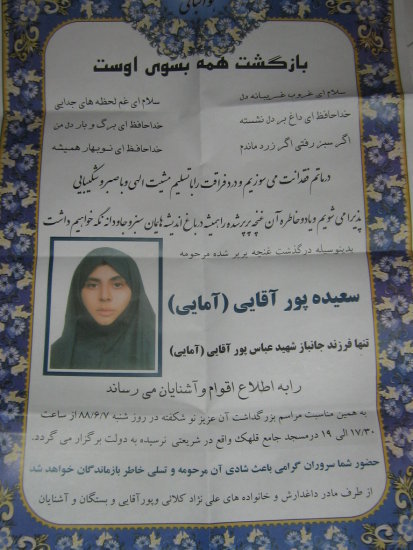 بازگشت همه بسوی اوست
سلام ای غروب غریبانه دل
سلام ای غم لحظه های جدایی
خداحافظ ای داغ بر دل نشسته
خداحافظ ای برگ و بار دل من
اگر سبز رفتی اگر زرد ماندم
خداحافظ ای نوبهار همیشه
در ماتم فقدانت می سوزیم و درد فراقت را با تسلیم مشیت الهی و با صبر و شکیبایی
پذیرا می شویم و یاد و خاطره آن غنچه پرپر شده را همیشه در باغ اندیشه هایمان سبز و جاودانه نگه خواهیم داشت
بدینوسیله درگذشت غنچه پرپر شده مرحومه
سعیده پور آقایی (آمایی)
تنها فرزند جانباز شهید عباس پور آقایی (آمایی)
را به اطلاع اقوام و آشنایان می رساند
به همین مناسبت مراسم بزرگداشت آن عزیز نو شکفته در روز شنبه ۸۸/۶/۷ از ساعت
۱۷/۳۰ الی ۱۹ در مسجد جامع قلهک واقع در شریعتی نرسیده به دولت برگزار می گردد.
حضور شما سروران گرامی باعث شادی آن مرحومه و تسلی خاطر بازماندگان خواهد شد
از طرف مادر داغدارش و خانواده های علی نژاد کلائی وپورآقایی و بستگان و آشنایان